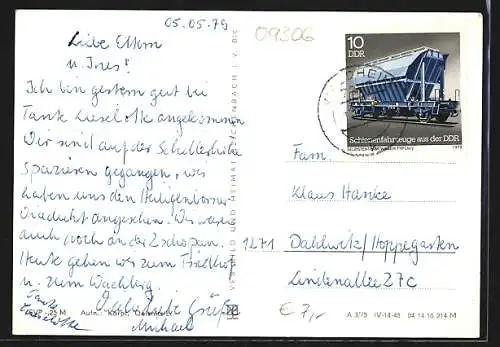 05.05.79
09306
Liebe Eltern
u. Ines!
Ich bin gestern gut bei
Tante Lieselotte angekommen
Wir sind auf der Schellerhöhe
Spazieren gegangen, wir
haben uns den Heiligenborner
Viadukt angesehen. Wir waren
auch noch an der Zschopau.
Heute gehen wir zum Friedhof
u. zum Wachberg.
Viele liebe Grüße
Michael
Tante
Lieselotte
VERLAG BILD UND HEIMAT REICHENBACH I. V. BIC
10
DDR
Schienenfahrzeuge aus der DDR
1979
Fam.
Klaus Hanke
1271 Dahlwitz/Hoppegarten
Lindenallee 27C
€ 7,-
25 M
A 3/75 IV-14-48 04 14 15 214 M